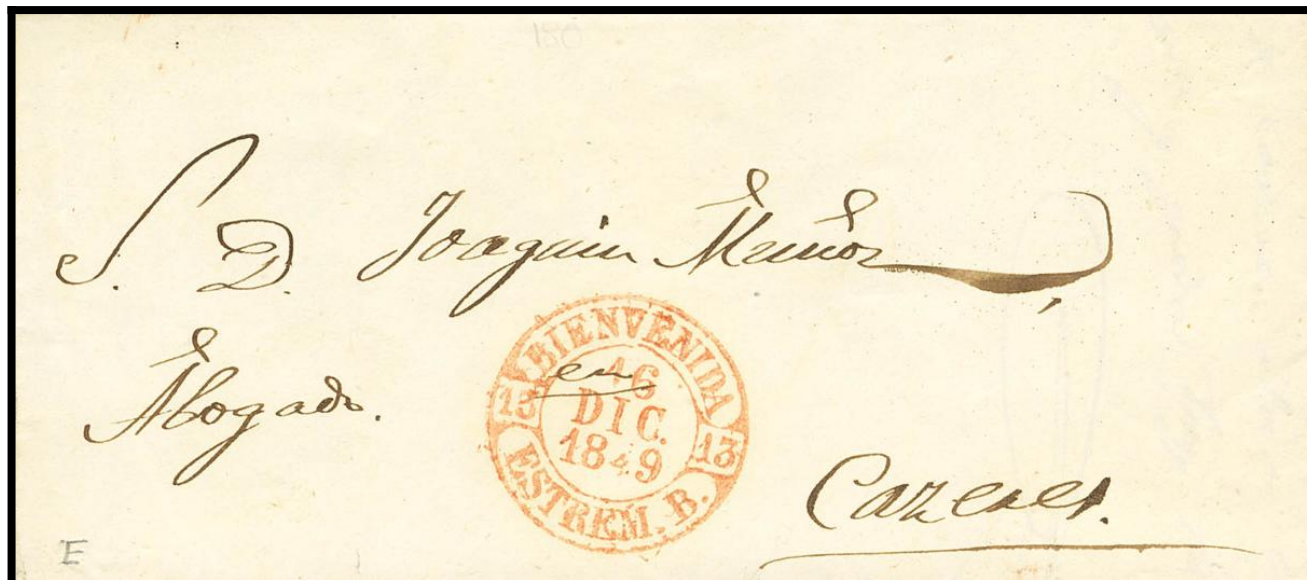 180
S. D. Joaquin Muñoz
Abogado.
en
BIENVENIDA
16
DIC.
1849
13 13
ESTREM. B.
Cazeres.
E